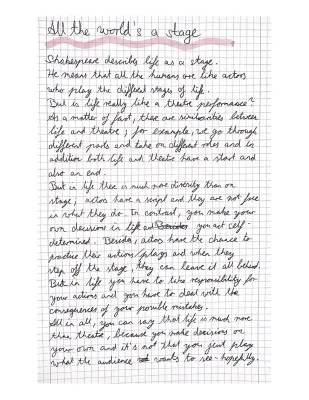 All the world's a stage
Shakespeare describes life as a stage.
He means that all the humans are like actors
who play the different stages of life.
But is life really like a theatre perfomance?
As a matter of fact, there are similiarities between
life and theatre, for example, we go through
different parts and take on different roles and in
addition both life and theatre have a start and
also an end.
But in life thee is much more diversity than on
stage, actors have a script and they are not free
in what they do. In contrast, you make your
own decisions in life and you act self-
determined. Besides, actors have the chance to
practice their actions/plays and when they
step off the stage, they can leave it all behind.
But in life you have to take responsibility for
your actions and you have to deal with the
consequences of your possible mistakes.
All in all, you can say that life is much more
than theatre, because you make decisions on
your own and it's not that you just play
what the audience wants to see - hopefully.